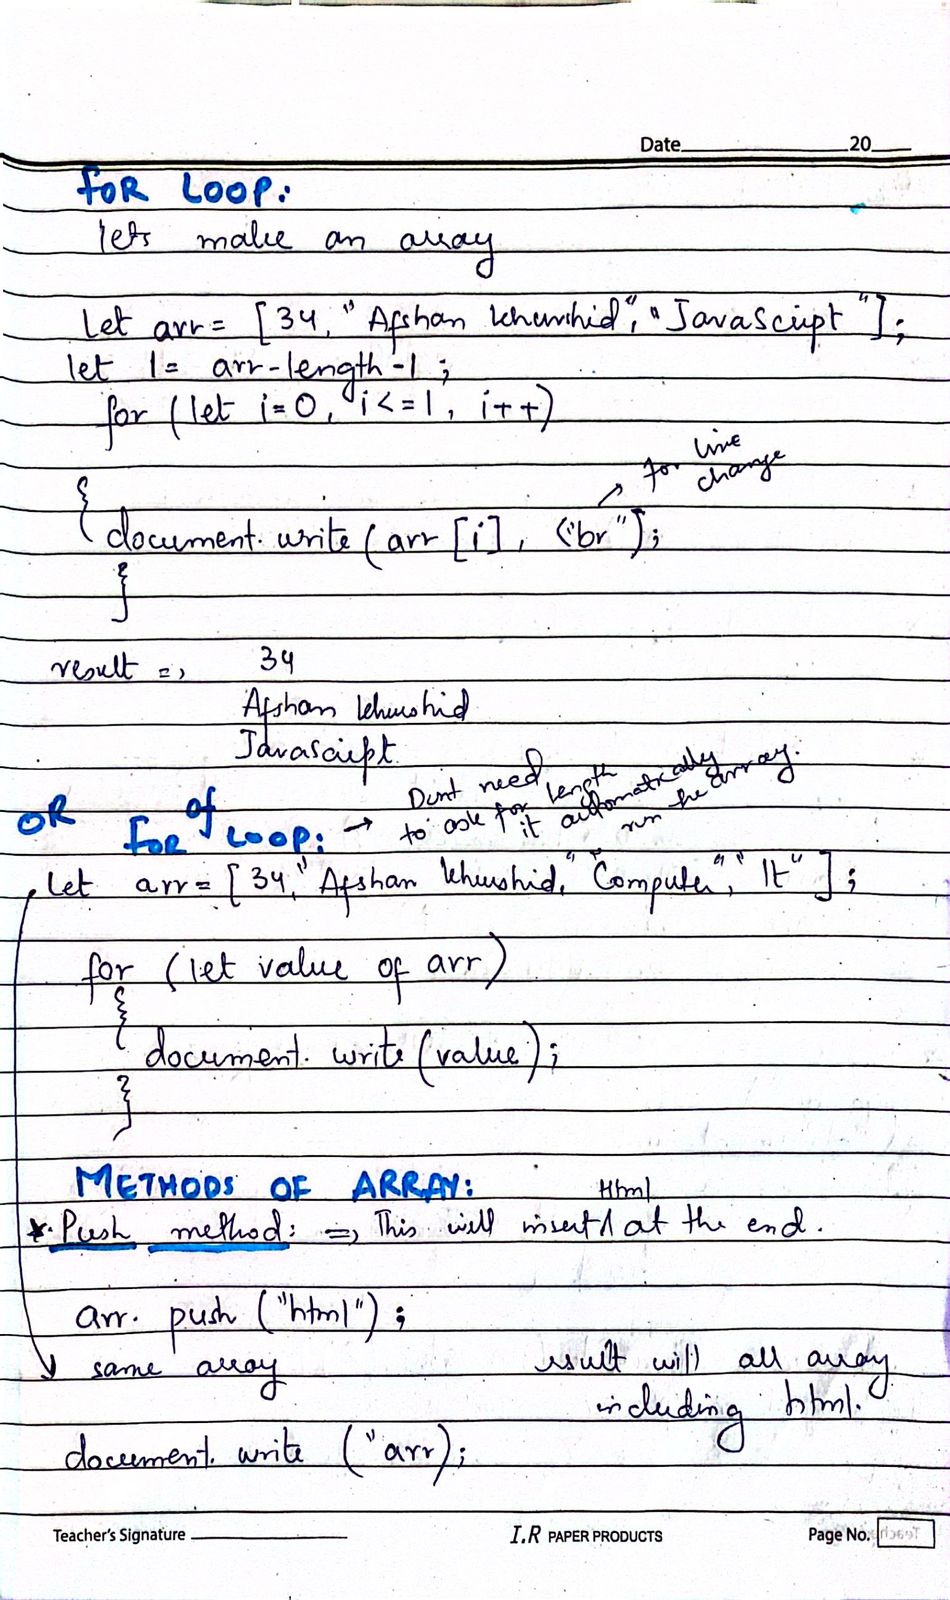 Date 20
FOR LOOP:
lets make an array
Let arr = [34, "Afshan Khurshid", "JavaScript"];
let l= arr-length-1;
for (let i=0, i<=l, i++)
for line
change
{
document. write (arr [i], <"br");
}
result => 34
Afshan Khurshid
Javascript
Dont need
to ask for length
it automatically
run the array.
OR FOR of LOOP: →
Let arr = [34, "Afshan Khurshid," "Computer", "It"];
for (let value of arr)
{
document. write (value);
}
METHODS OF ARRAY:
Html
*. Push method: => This will insert ∧ at the end.
arr. push ("html");
same array
result will all array
including html.
document. write ("arr);
Teacher's Signature I.R PAPER PRODUCTS Page No.